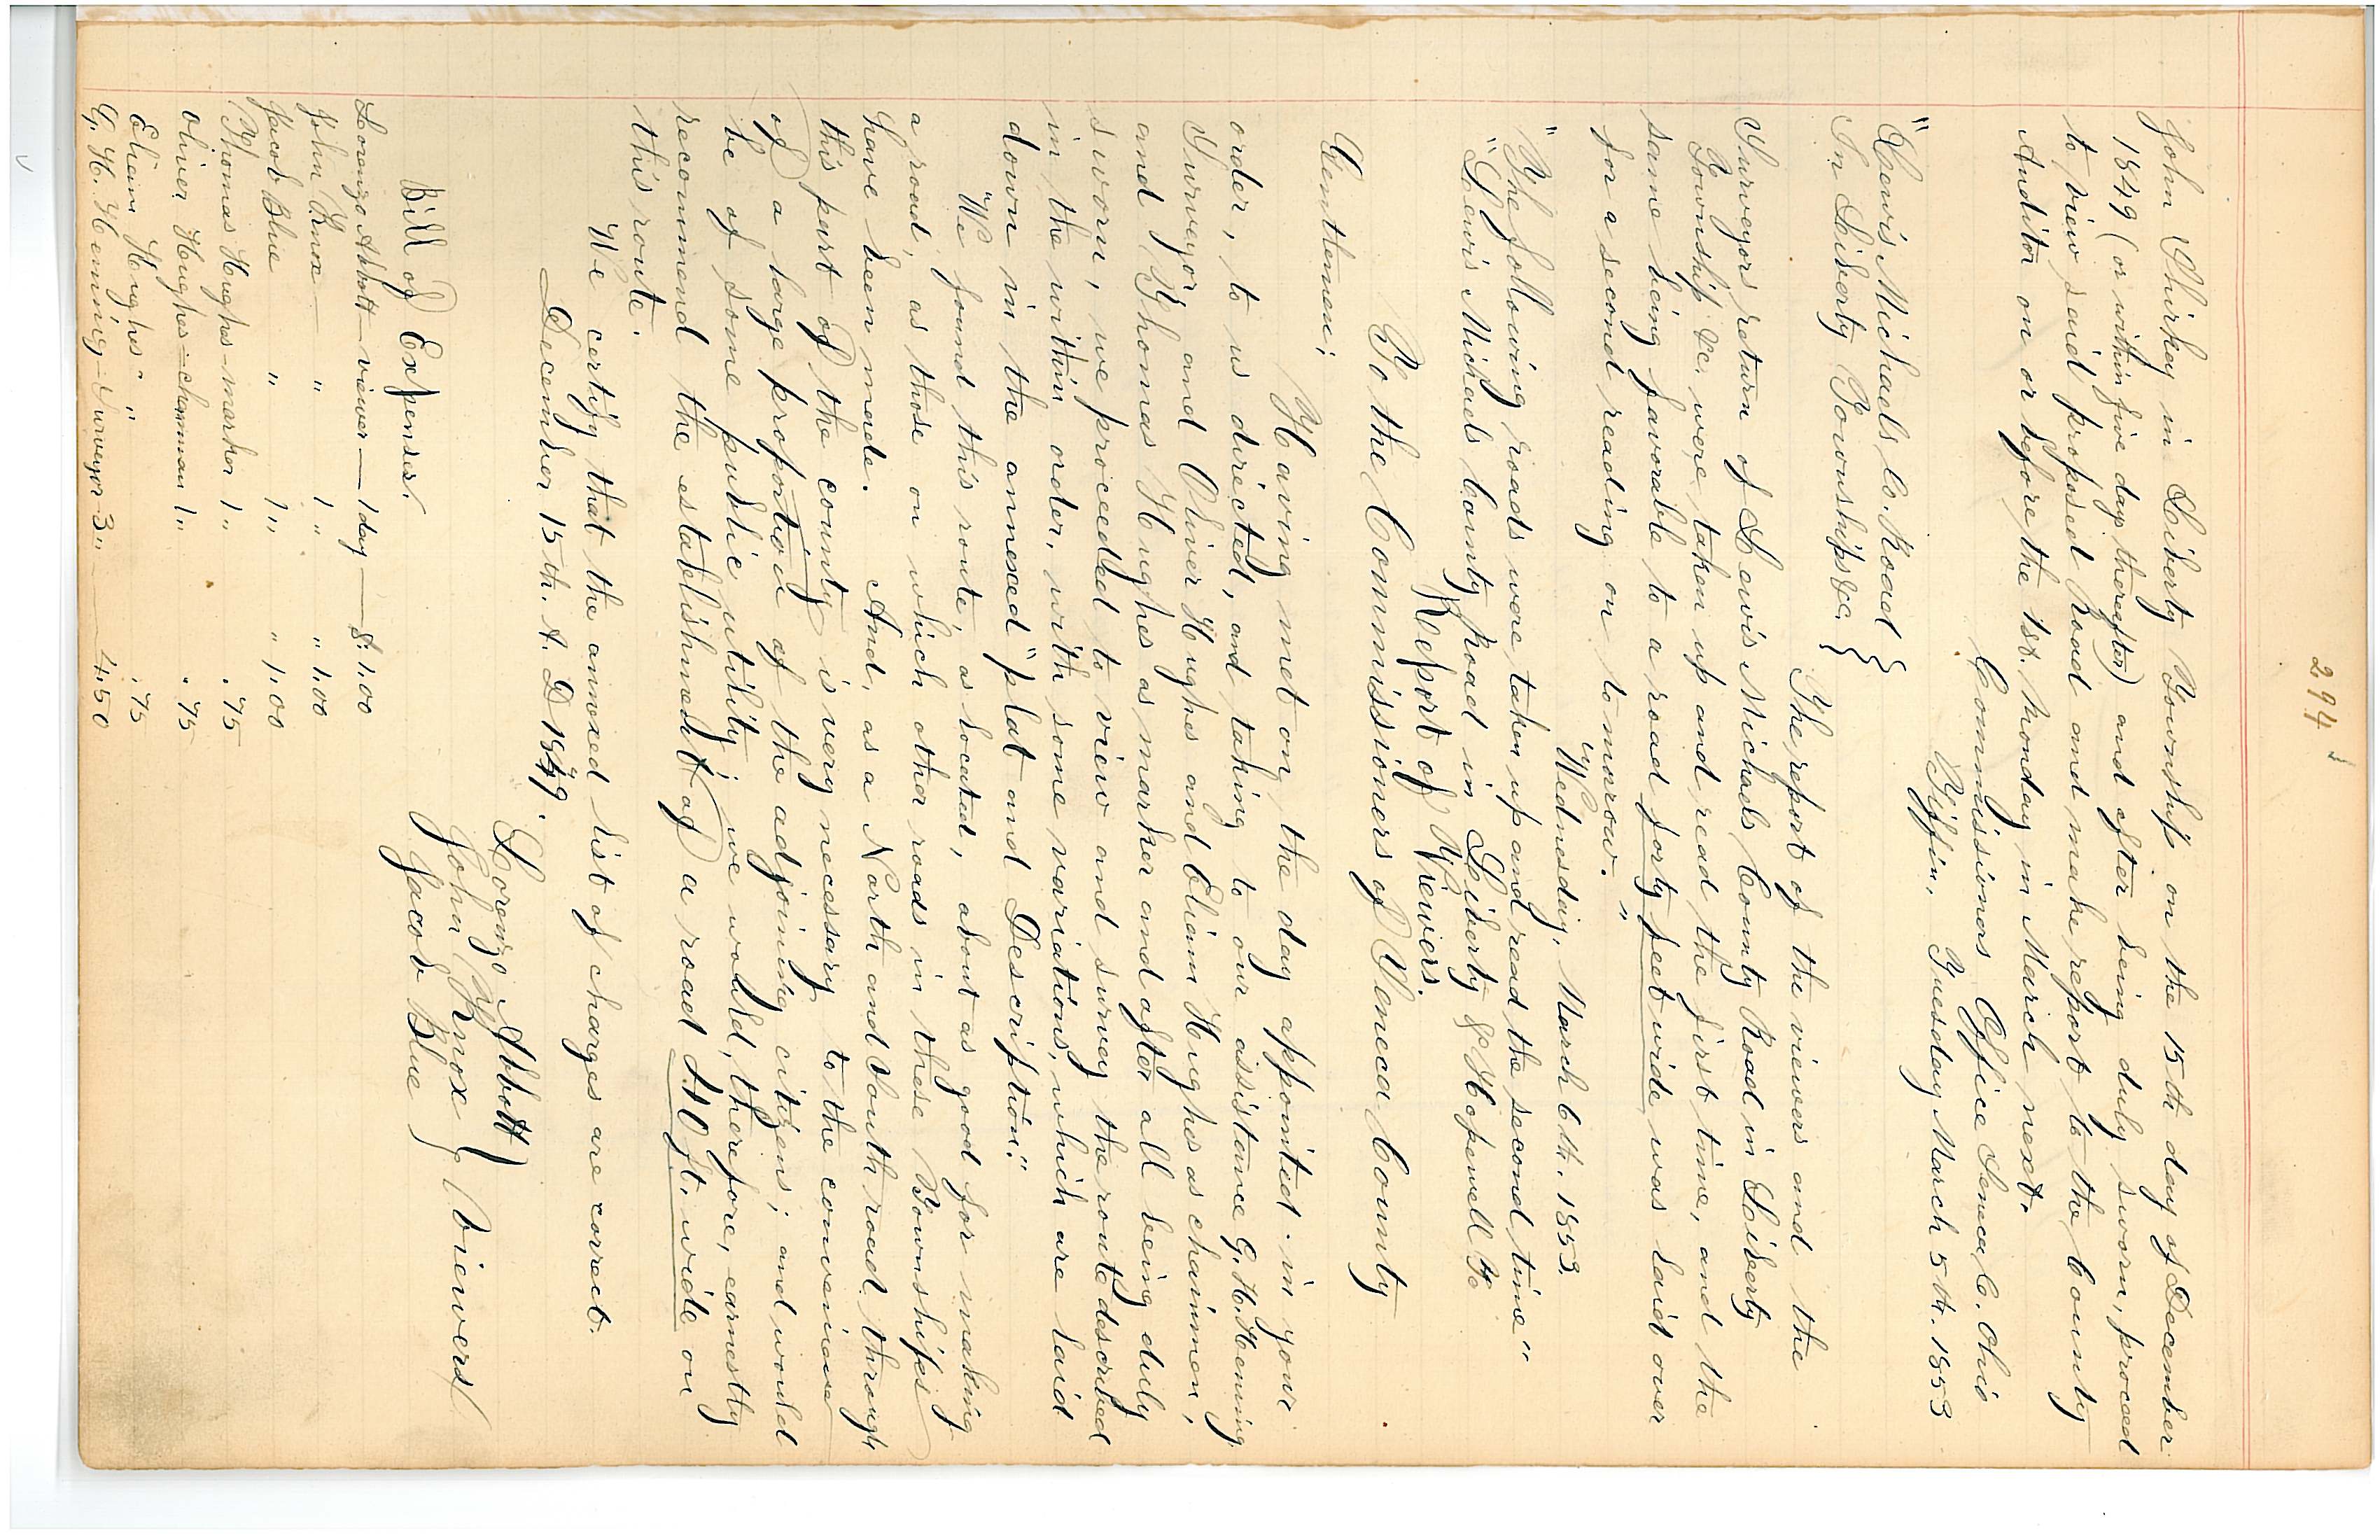 294
John Shirkey in Liberty Township on the 15th day of December
1849 (or within five days thereafter) and after being duly sworn, proceed
to view said proposed Road and make report to the County
Auditor on or before the 1st. Monday in March next.
Commissioners Office Seneca Co. Ohio
Tiffin, Tuesday March 5th. 1853
"Lewis Michaels Co. Road }
In Liberty Townships &c. }
The report of the viewers and the
Surveyors return of Lewis Michaels County Road in Liberty
Township &c. were taken up and read the first time, and the
same being favorable to a road forty feet wide was laid over
for a second reading on to morrow."
"Wednesday, March 6th. 1853.
"The following roads were taken up and read the second time"
"Lewis Michaels County Road in Liberty & Hopewell Tp
Report of Viewers.
To the Commissioners of Seneca County
Gentlemen;
Having met on the day appointed in your
order, to us directed, and taking to our assistance G. H. Hening
Surveyor, and Oliver Hughes and Eliam Hughes as chainmen,
and Thomas Hughes as marker and after all being duly
sworn, we proceeded to view and survey the route described
in the within order, with some variations, which are laid
down in the annexed "plat and Description."
"We found this route, as located, about as good for making
a road, as those on which other roads in these Townships
have been made. And, as a North and South road, through
this part of the county is very necessary to the convenience
of a large proportion of the adjoining citizens; and would
be of some public utility; we would, therefore, earnestly
recommend the establishment of a road 40 ft. wide on
this route.
We certify that the annexed list of charges are correct.
December 15th. A. D 1849.
Lorenzo Abbott }
John Knox } Viewers
Jacob Blue }
Bill of Expenses.
Lorenzo Abbott — viewer — 1 day — $. 1.00
John Knox — " 1 " " 1.00
Jacob Blue " 1 " " 1.00
Thomas Hughes — marker 1 " . 75
Oliver Hughes — chainman 1 " . 75
Eliam Hughes " " . 75
G. H. Heming — Surveyor 3 " — 4.50